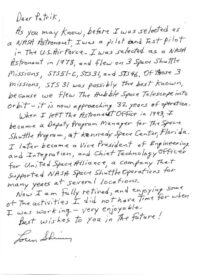 Dear Patrik,
As you may know, before I was selected as
a NASA Astronaut, I was a pilot and test pilot
in the U.S. Air Force. I was selected as a NASA
Astronaut in 1978, and flew on 3 Space Shuttle
Missions, STS 51-C, STS 31, and STS 46. Of those 3
missions, STS 31 was possibly the best known,
because we flew The Hubble Space Telescope into
orbit - it is now approaching 32 years of operation.
When I left The Astronaut Office in 1993, I
became a Deputy Program Manager for The Space
Shuttle Program, at Kennedy Space Center, Florida.
I later became a Vice President of Engineering
and Integration, and Chief Technology Officer
for United Space Alliance, a company that
supported NASA Space Shuttle Operations for
many years at several locations.
Now I am fully retired, and enjoying some
of the activities I did not have time for when
I was working - very enjoyable.
Best wishes to you in the future!